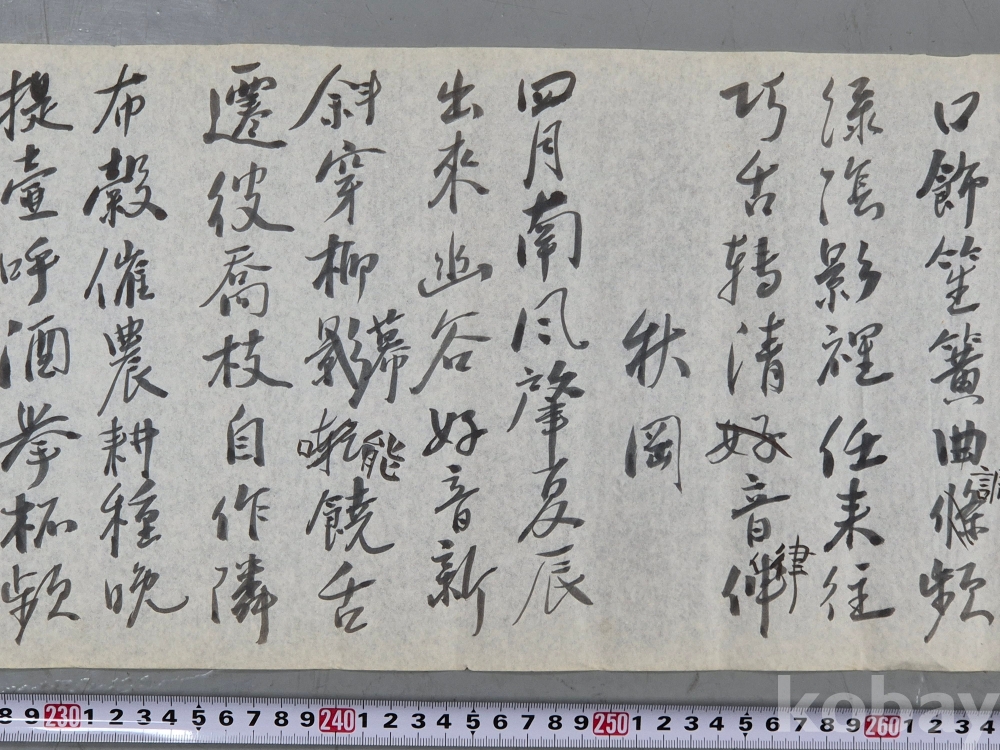 口飾笙簧曲條頻
綠陰影裡任来往
巧舌轉清好音伸
律
秋岡
四月南风肇夏辰
出來幽谷好音新
斜穿柳影饒舌
幕
能
遷彼喬枝自作隣
布穀催農耕種晚
提壷呼酒挙杯頻
8 9 230 1 2 3 4 5 6 7 8 9 240 1 2 3 4 5 6 7 8 9 250 1 2 3 4 5 6 7 8 9 260 1 2 3 4
kobay